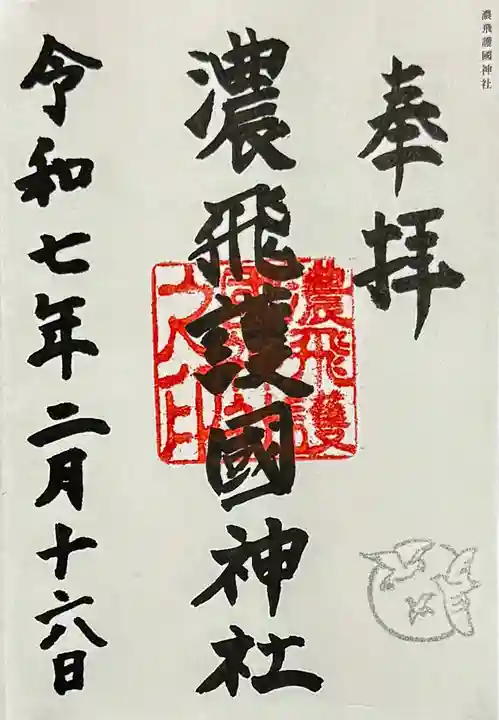 濃飛護國神社
奉拝
濃飛護國神社
濃飛護
之印
令和七年二月十六日